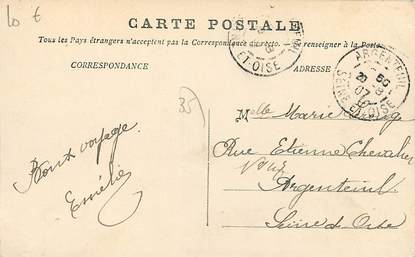 10 €
CARTE POSTALE
Tous les Pays étrangers n'acceptent pas la Correspondance au recto. Se renseigner à la Poste.
CORRESPONDANCE
ADRESSE
ET-OISE
ARGENTEUIL
SEINE ET-OISE
35
Bons voyage
Emélie
Melle Marie
Rue Etienne Chevalier
Argenteuil
Seine et Oise